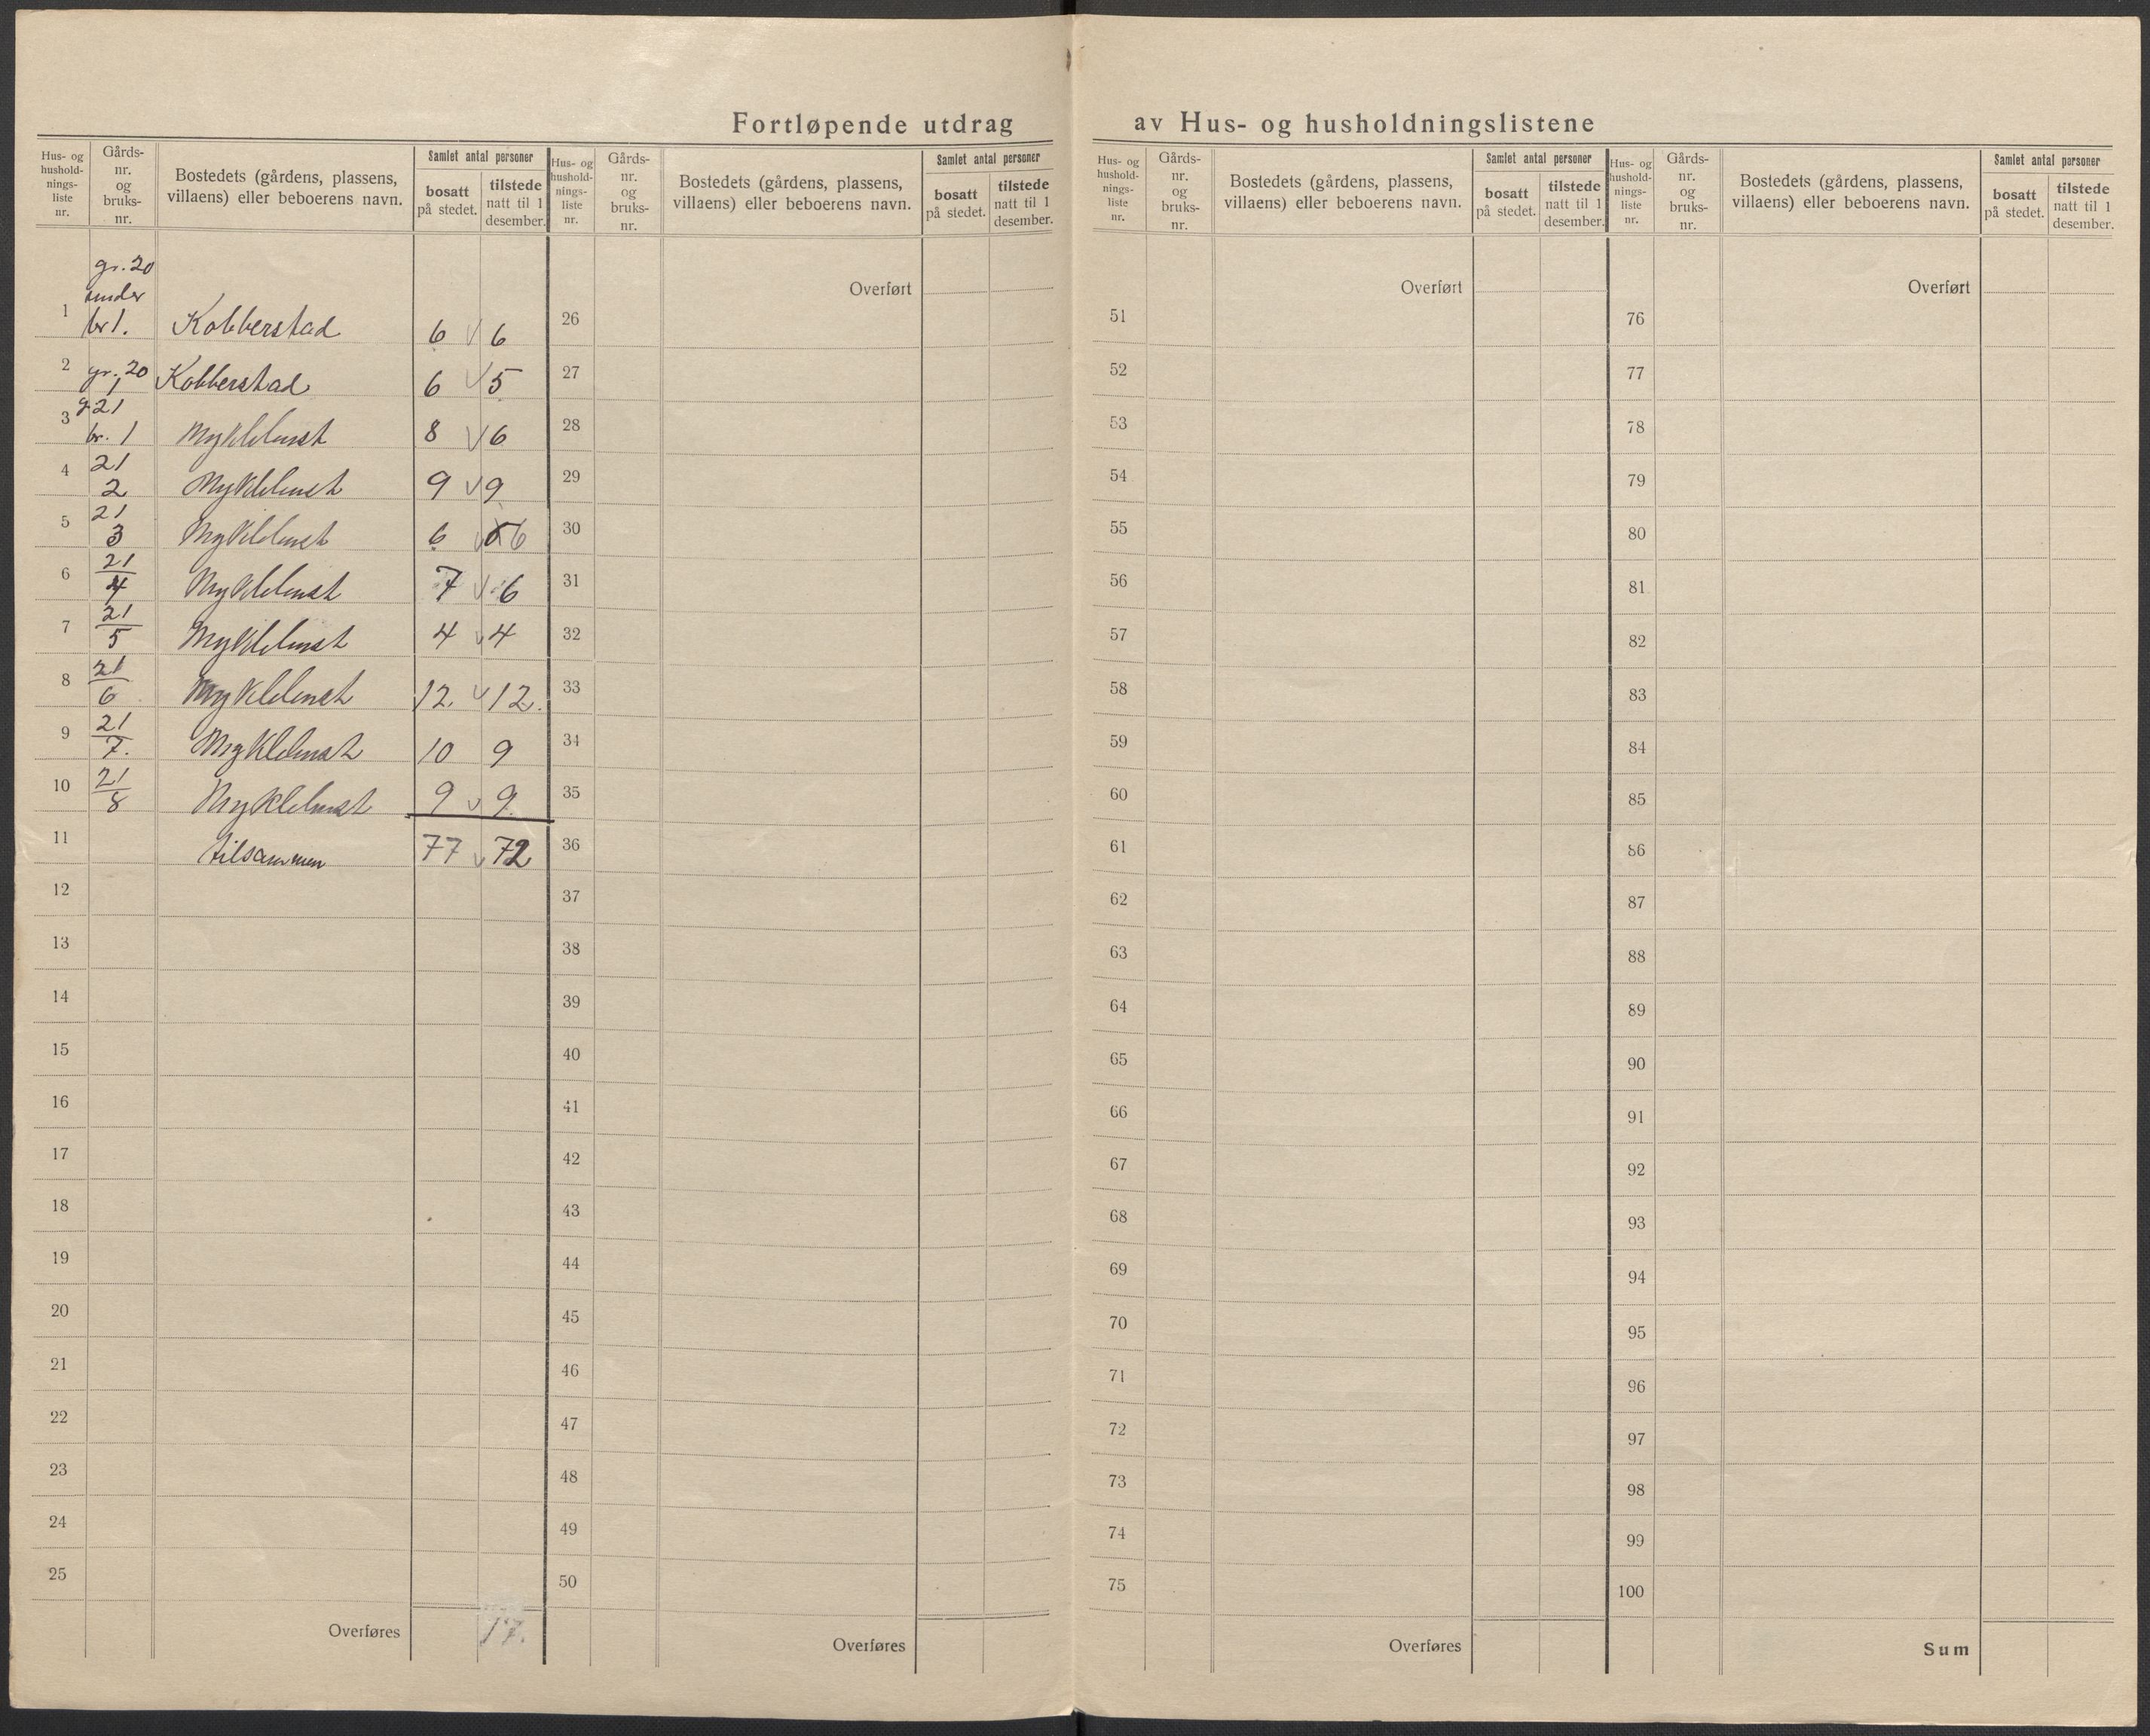 Fortløpende utdrag av Hus- og husholdningslistene
Hus- og hushold- nings- liste nr.
Gårds- nr. og bruks- nr.
Bostedets (gårdens, plassens, villaens) eller beboerens navn.
Samlet antal personer
bosatt på stedet.
tilstede natt til 1 desember.
gr. 20
under
1 br 1. Kobberstad 6 6
2 gr. 20 1 Kobberstad 6 5
3 g 21 br. 1 Myklebust 8 6
4 21 2 Myklebust 9 9
5 21 3 Myklebust 6 6
6 21 4 Myklebust 7 6
7 21 5 Myklebust 4 4
8 21 6 Myklebust 12 12.
9 21 7. Myklebust 10 9
10 21 8 Myklebust 9 9.
11 tilsammen 77 72
12
13
14
15
16
17
18
19
20
21
22
23
24
25
Overføres 17.
Hus- og hushold- nings- liste nr.
Gårds- nr. og bruks- nr.
Bostedets (gårdens, plassens, villaens) eller beboerens navn.
Samlet antal personer
bosatt på stedet.
tilstede natt til 1 desember.
Overført
26
27
28
29
30
31
32
33
34
35
36
37
38
39
40
41
42
43
44
45
46
47
48
49
50
Overføres
Hus- og hushold- nings- liste nr.
Gårds- nr. og bruks- nr.
Bostedets (gårdens, plassens, villaens) eller beboerens navn.
Samlet antal personer
bosatt på stedet.
tilstede natt til 1 desember.
Overført
51
52
53
54
55
56
57
58
59
60
61
62
63
64
65
66
67
68
69
70
71
72
73
74
75
Overføres
Hus- og hushold- nings- liste nr.
Gårds- nr. og bruks- nr.
Bostedets (gårdens, plassens, villaens) eller beboerens navn.
Samlet antal personer
bosatt på stedet.
tilstede natt til 1 desember.
Overført
76
77
78
79
80
81
82
83
84
85
86
87
88
89
90
91
92
93
94
95
96
97
98
99
100
Sum